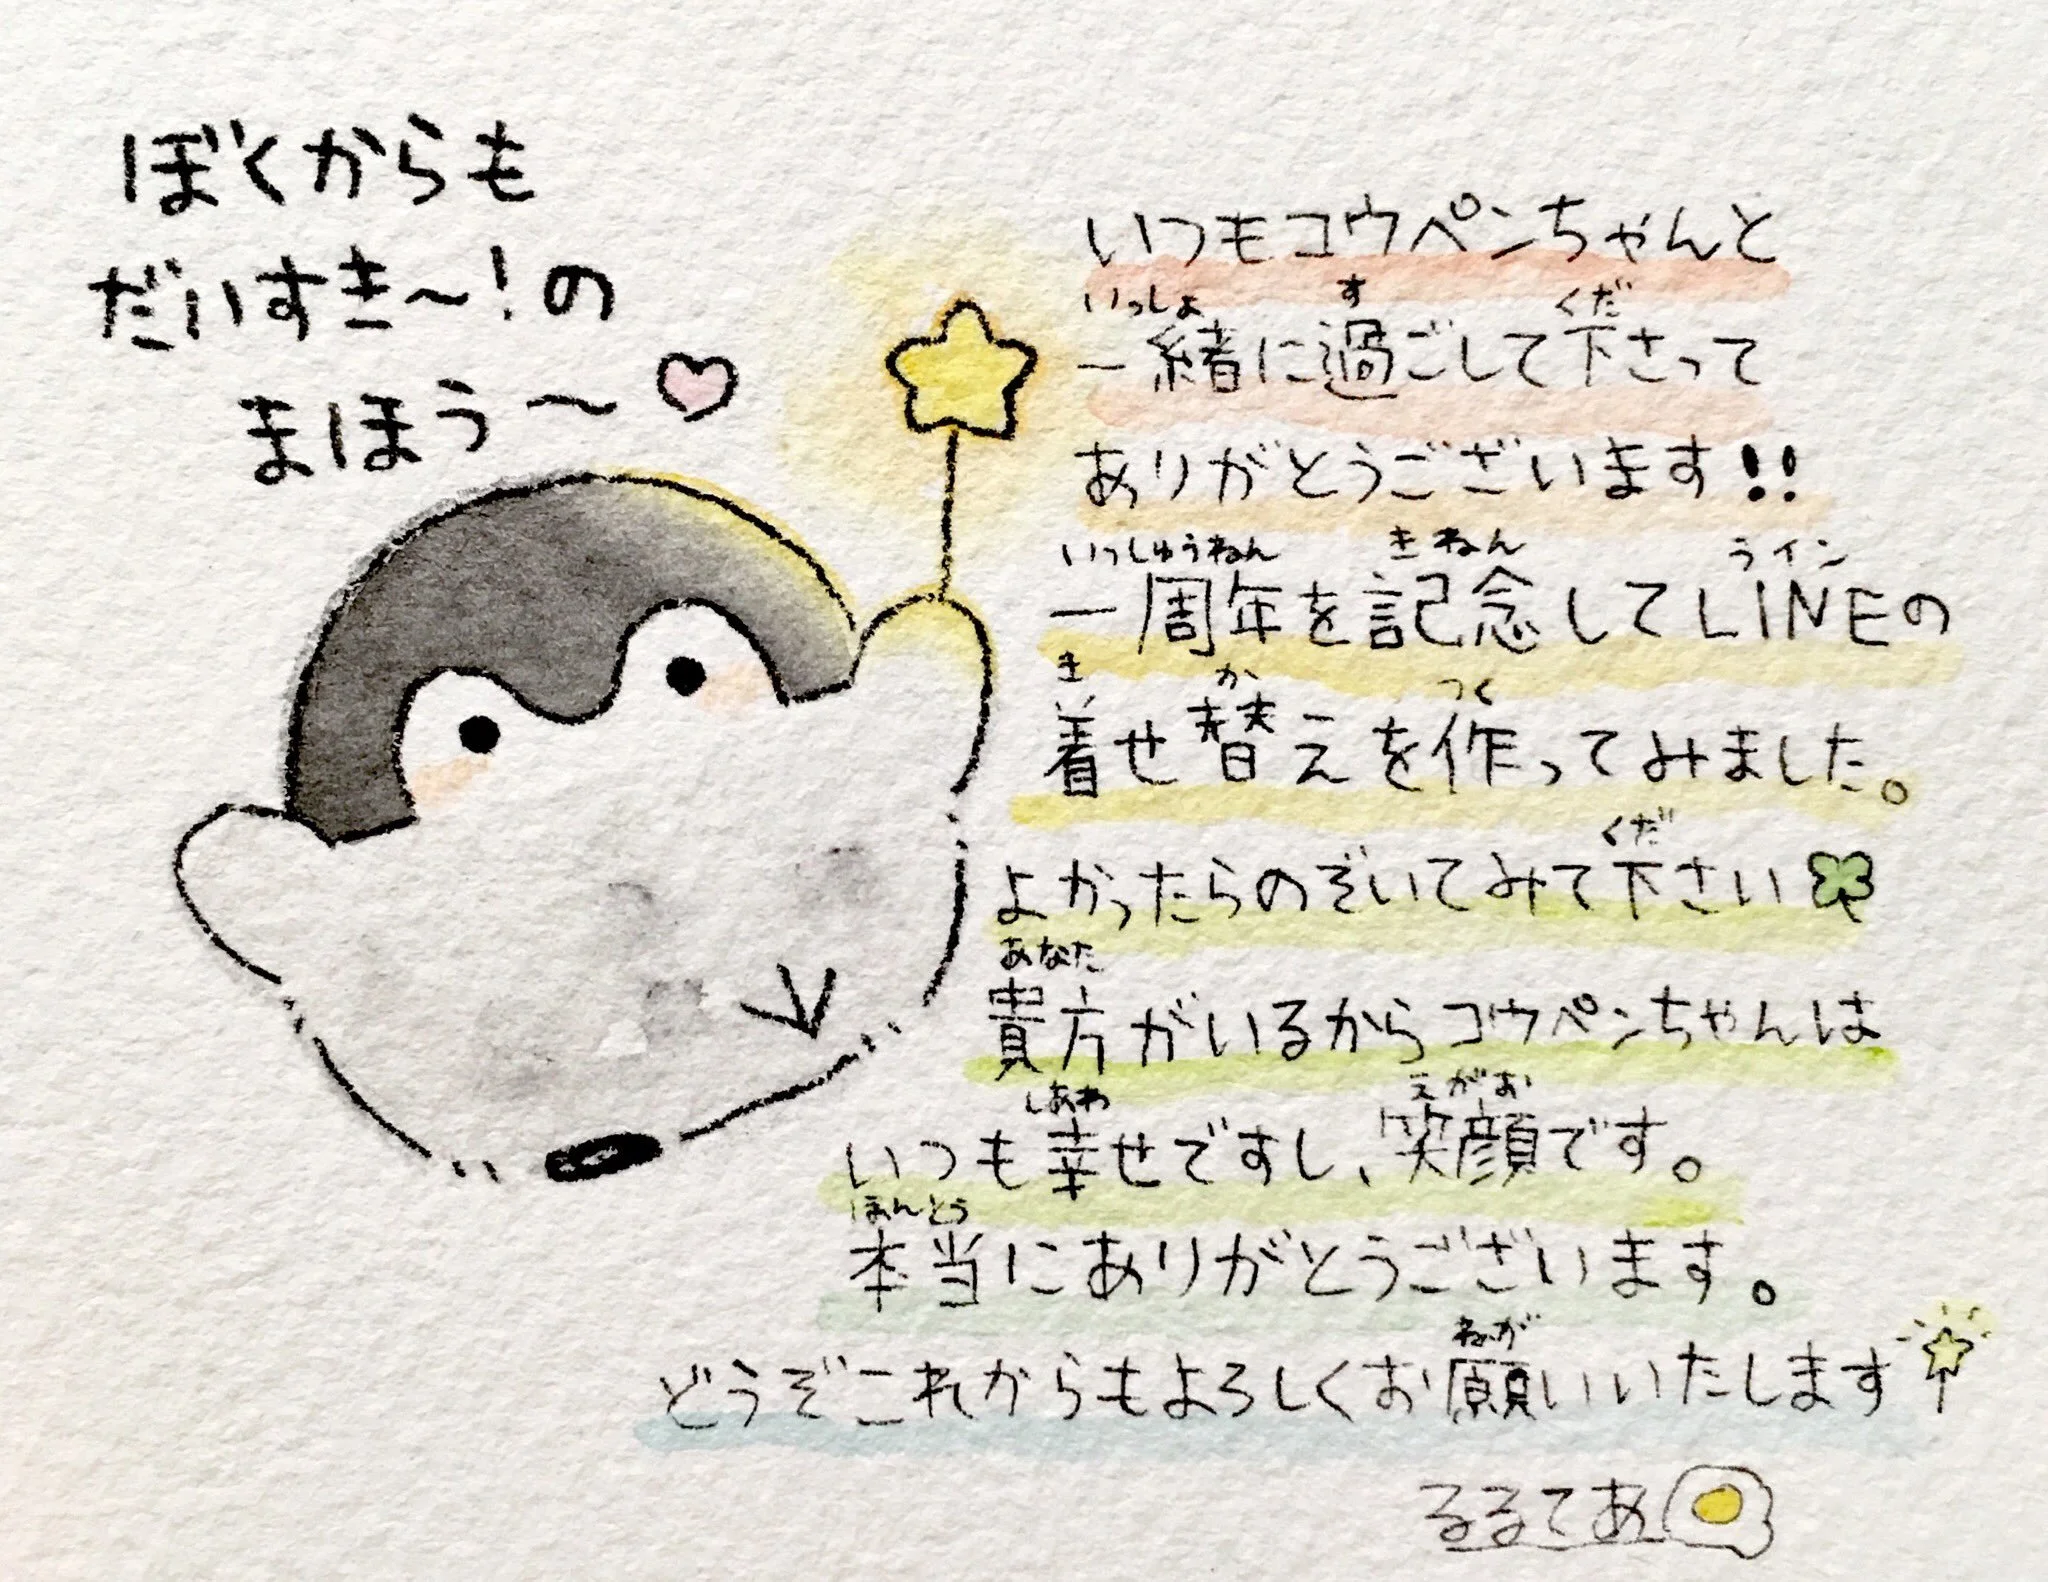 ぼくからも
だいすき〜!の
まほう〜
いつもコウペンちゃんと
いっしょ す くだ
一緒に過ごして下さって
ありがとうございます!!
いっしゅうねん きねん ライン
一周年を記念してLINEの
き か つく
着せ替えを作ってみました。
くだ
よかったらのぞいてみて下さい
あなた
貴方がいるからコウペンちゃんは
しあわ えがお
いつも幸せですし、笑顔です。
ほんとう
本当にありがとうございます。
ねが
どうぞこれからもよろしくお願いいたします
るるてあ